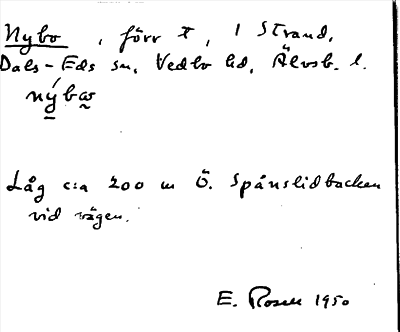 Nybo, förr t, 1 Strand,
Dals-Eds sn, Vedbo hd, Älvsb. l.
nýbω
Låg c:a 200 m Ö. Spånslidbacken
vid vägen.
E. Rosell 1950